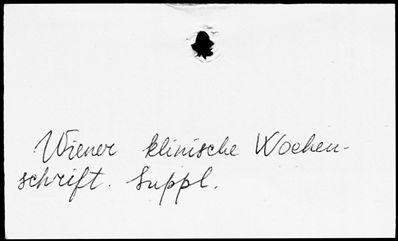 Wiener klinische Wochen-
schrift. Suppl.